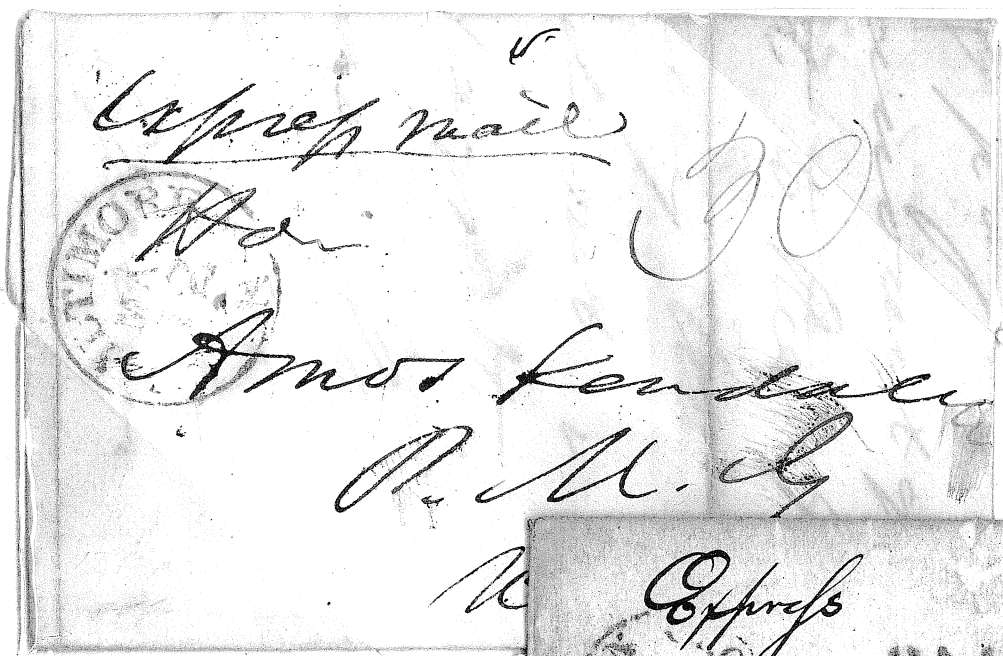 Express mail
30
BALTIMORE
Hon
Amos Kendall
P. M. G
Express